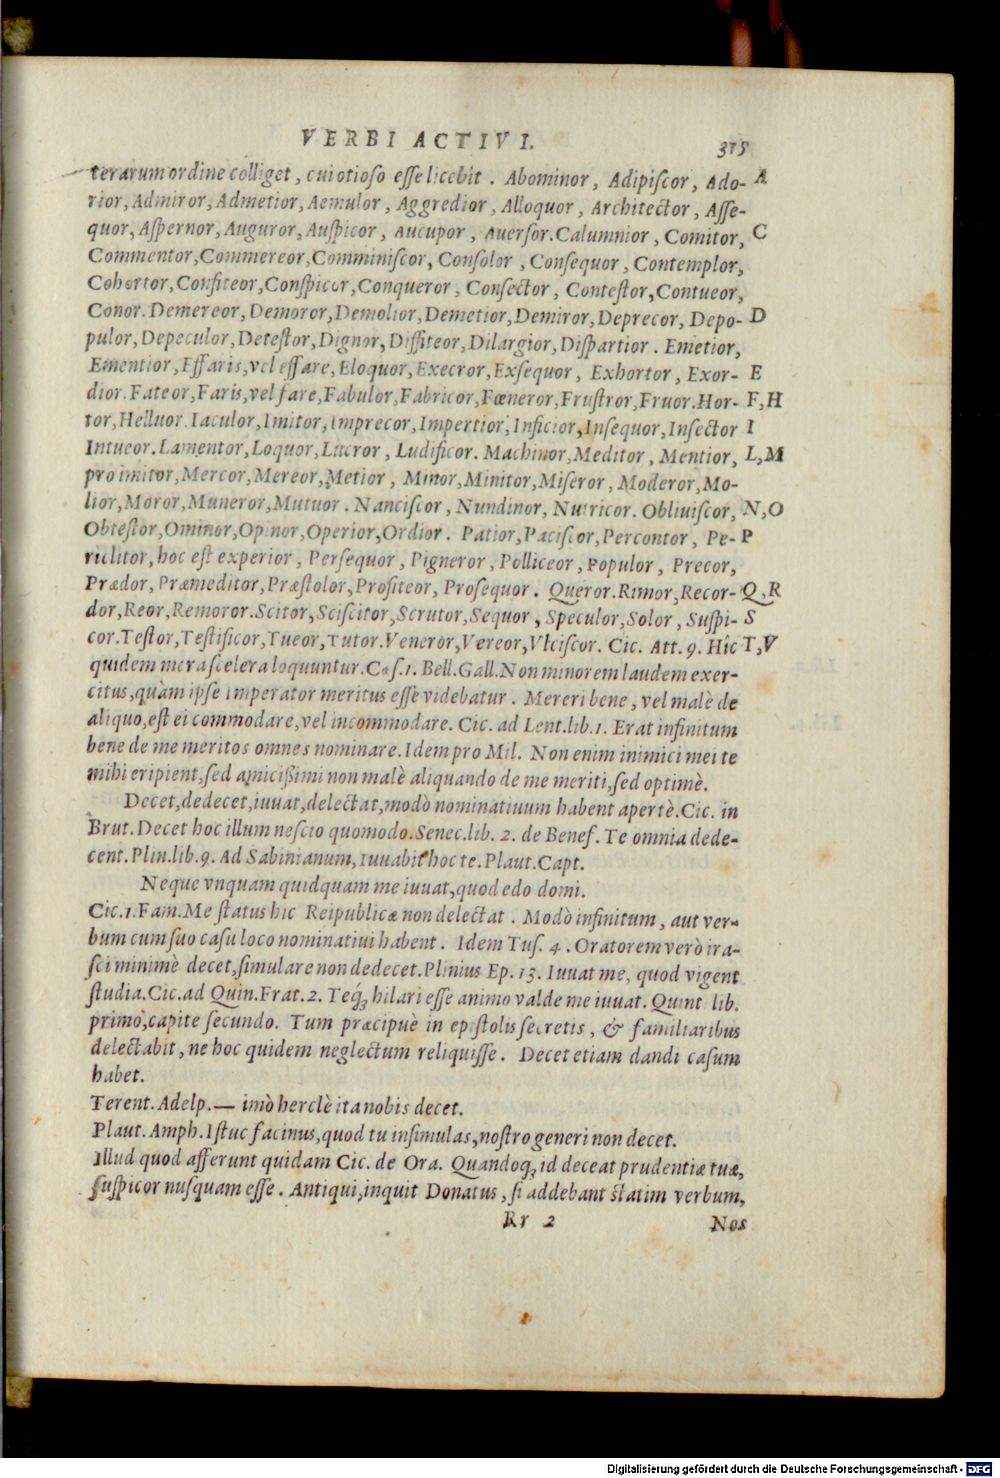 VERBI ACTIVI. 375
terarum ordine colliget, cui otioso esse licebit. Abominor, Adipiscor, Ado- A
rior, Admiror, Admetior, Aemulor, Aggredior, Alloquor, Architector, Asse-
quor, Aspernor, Auguror, Auspicor, Aucupor, Auersor. Calumnior, Comitor, C
Commentor, Commereor, Comminiscor, Consolor, Consequor, Contemplor,
Cohortor, Confiteor, Conspicor, Conqueror, Consector, Contestor, Contueor,
Conor. Demereor, Demoror, Demolior, Demetior, Demiror, Deprecor, Depo- D
pulor, Depeculor, Detestor, Dignor, Diffiteor, Dilargior, Dispartior. Emetior,
Ementior, Effaris, vel effare, Eloquor, Execror, Exsequor, Exhortor, Exor- E
dior. Fateor, Faris, vel fare, Fabulor, Fabricor, Fœneror, Frustror, Fruor. Hor- F, H
tor, Helluor. Iaculor, Imitor, Imprecor, Impertior, Inficior, Insequor, Insector I
Intueor. Lamentor, Loquor, Lucror, Ludificor. Machinor, Meditor, Mentior, L, M
pro imitor, Mercor, Mereor, Metior, Minor, Minitor, Miseror, Moderor, Mo-
lior, Moror, Muneror, Mutuor. Nanciscor, Nundinor, Nutricor. Obliuiscor, N, O
Obtestor, Ominor, Opinor, Operior, Ordior. Patior, Paciscor, Percontor, Pe- P
riclitor, hoc est experior, Persequor, Pigneror, Polliceor, Populor, Precor,
Prædor, Præmeditor, Præstolor, Profiteor, Prosequor. Queror. Rimor, Recor- Q, R
dor, Reor, Remoror. Scitor, Sciscitor, Scrutor, Sequor, Speculor, Solor, Suspi- S
cor. Testor, Testificor, Tueor, Tutor. Veneror, Vereor, Vlciscor. Cic. Att. 9. Hîc T, V
quidem mera scelera loquuntur. Cæs. 1. Bell. Gall. Non minorem laudem exer-
citus, quàm ipse imperator meritus esse videbatur. Mereri bene, vel malè de
aliquo, est ei commodare, vel incommodare. Cic. ad Lent. lib. 1. Erat infinitum
bene de me meritos omnes nominare. Idem pro Mil. Non enim inimici mei te
mihi eripient, sed amicißimi non malè aliquando de me meriti, sed optimè.
Decet, dedecet, iuuat, delectat, modò nominatiuum habent apertè. Cic. in
Brut. Decet hoc illum nescio quomodo. Senec. lib. 2. de Benef. Te omnia dede-
cent. Plin. lib. 9. Ad Sabinianum, Iuuabit hoc te. Plaut. Capt.
Neque vnquam quidquam me iuuat, quod edo domi.
Cic. 1. Fam. Me status hic Reipublicæ non delectat. Modò infinitum, aut ver-
bum cum suo casu loco nominatiui habent. Idem Tus. 4. Oratorem verò ira-
sci minimè decet, simulare non dedecet. Plinius Ep. 13. Iuuat me, quod vigent
studia. Cic. ad Quin. Frat. 2. Teq́; hilari esse animo valde me iuuat. Quint lib.
primo, capite secundo. Tum præcipuè in epistolis secretis, & familiaribus
delectabit, ne hoc quidem neglectum reliquisse. Decet etiam dandi casum
habet.
Terent. Adelp.— imò herclè ita nobis decet.
Plaut. Amph. Istuc facinus, quod tu insimulas, nostro generi non decet.
Illud quod afferunt quidam Cic. de Ora. Quandoq; id deceat prudentiæ tuæ,
suspicor nusquam esse. Antiqui, inquit Donatus, si addebant statim verbum,
Rr 2 Nos
Digitalisierung gefördert durch die Deutsche Forschungsgemeinschaft - DFG